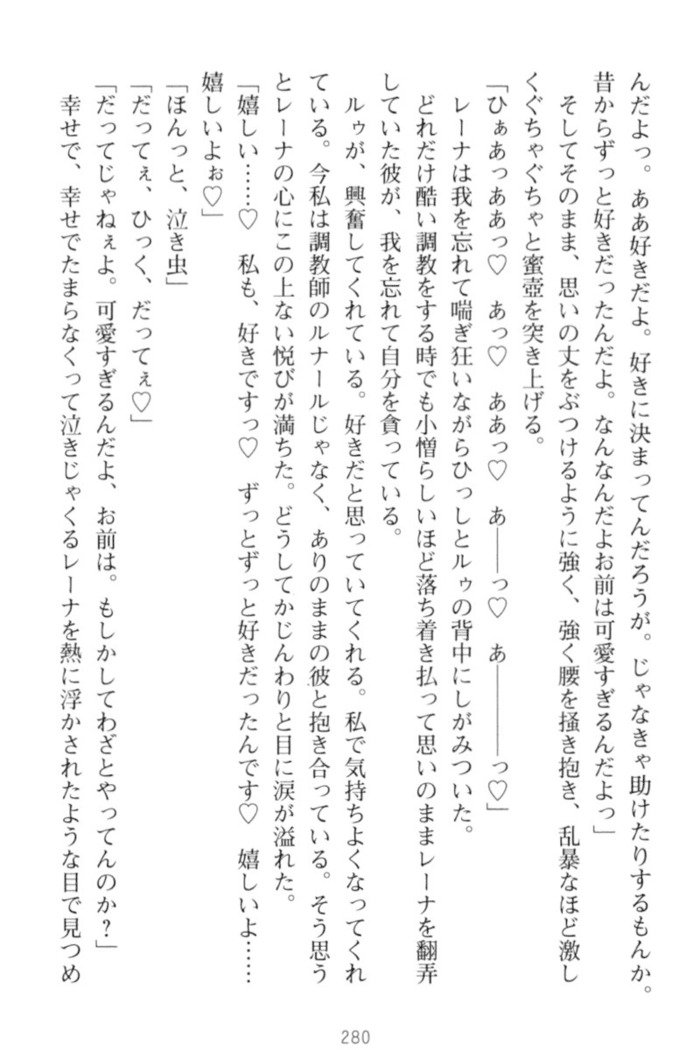 んだよっ。ああ好きだよ。好きに決まってんだろうが。じゃなきゃ助けたりするもんか。
昔からずっと好きだったんだよ。なんなんだよお前は可愛すぎるんだよっ」
そしてそのまま、思いの丈をぶつけるように強く、強く腰を掻き抱き、乱暴なほど激し
くぐちゃぐちゃと蜜壺を突き上げる。
「ひぁあっああっ♡　あっ♡　ああっ♡　あ――っ♡　あ――――っ♡」
レーナは我を忘れて喘ぎ狂いながらひっしとルゥの背中にしがみついた。
どれだけ酷い調教をする時でも小憎らしいほど落ち着き払って思いのままレーナを翻弄
していた彼が、我を忘れて自分を貪っている。
ルゥが、興奮してくれている。好きだと思っていてくれる。私で気持ちよくなってくれ
ている。今私は調教師のルナールじゃなく、ありのままの彼と抱き合っている。そう思う
とレーナの心にこの上ない悦びが満ちた。どうしてかじんわりと目に涙が溢れた。
「嬉しい……♡　私も、好きですっ♡　ずっとずっと好きだったんです♡　嬉しいよ……
嬉しいよぉ♡」
「ほんっと、泣き虫」
「だってぇ、ひっく、だってぇ♡」
「だってじゃねぇよ。可愛すぎるんだよ、お前は。もしかしてわざとやってんのか？」
幸せで、幸せでたまらなくって泣きじゃくるレーナを熱に浮かされたような目で見つめ
280